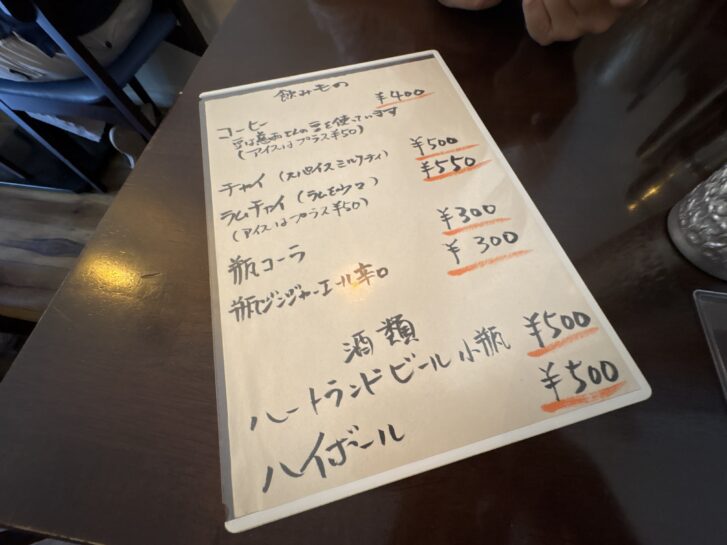 飲みもの
コーヒー ¥400
豆は意おさんの豆を使っています
(アイスはプラス¥50)
チャイ (スパイスミルクティ) ¥500
ラムチャイ (ラムモウマ) ¥550
(アイスはプラス¥50)
瓶コーラ ¥300
瓶ジンジャーエール辛口 ¥300
酒類
ハートランドビール小瓶 ¥500
ハイボール ¥500